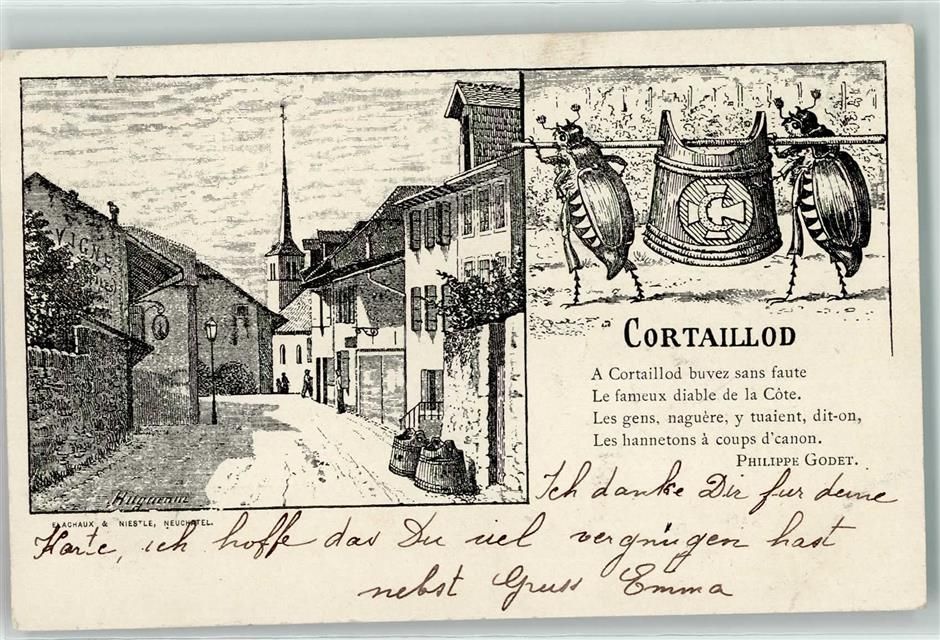 VIGNE
CORTAILLOD
A Cortaillod buvez sans faute
Le fameux diable de la Côte.
Les gens, naguère, y tuaient, dit-on,
Les hannetons à coups d'canon.
PHILIPPE GODET.
Huguenin
& NIESTLE, NEUCHATEL.
Ich danke Dir fur deine
Karte, ich hoffe das Du viel vergnügen hast
nebst Gruss Emma